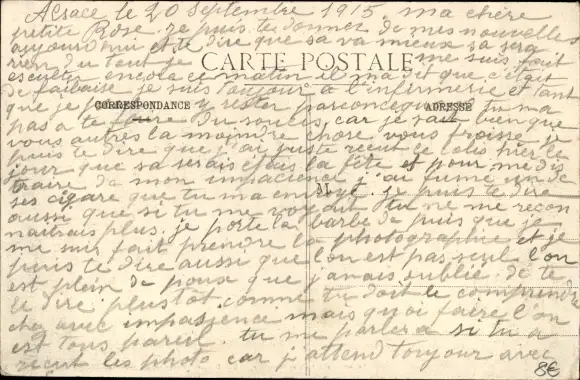 Alsace le 20 septembre 1915 ma chère
petite Rose. je puis te donner de mes nouvelles
aujourdhui et te dire que sa va mieux sa sera
rien du tout je me suis fait
CARTE POSTALE
encola ce matin il ma dit que c'était
de faibaise je suis toujour a l'infirmerie et tant
que je y rester parconcequent tu ma
CORRESPONDANCE
ADRESSE
pas a te faire du soucis, car je sait bien que
vous autres la moindre chose vous froisse. je
puis te dire que j'ai juste recut le colis hier le
jour que sa serais étais la fête et pour me dis
traire de mon impacience j'ai fumé un de
M
ses cigare que tu ma envoyé. je puis te dire
aussi que si tu me voyait tu ne me recon
naitrais plus. je porte la barbe de puis que je
me suis fait prendre la photographie et je
puis te dire aussi que l'on est pas seul l'on
est plein de poux que j'avais oublié de te
le dire plustot. comme tu doit le comprendre
avec impassience mais quoi faire l'on
est tous pareil. tu me parlera si tu a
recut les photo car j'attend toujour avec
8€